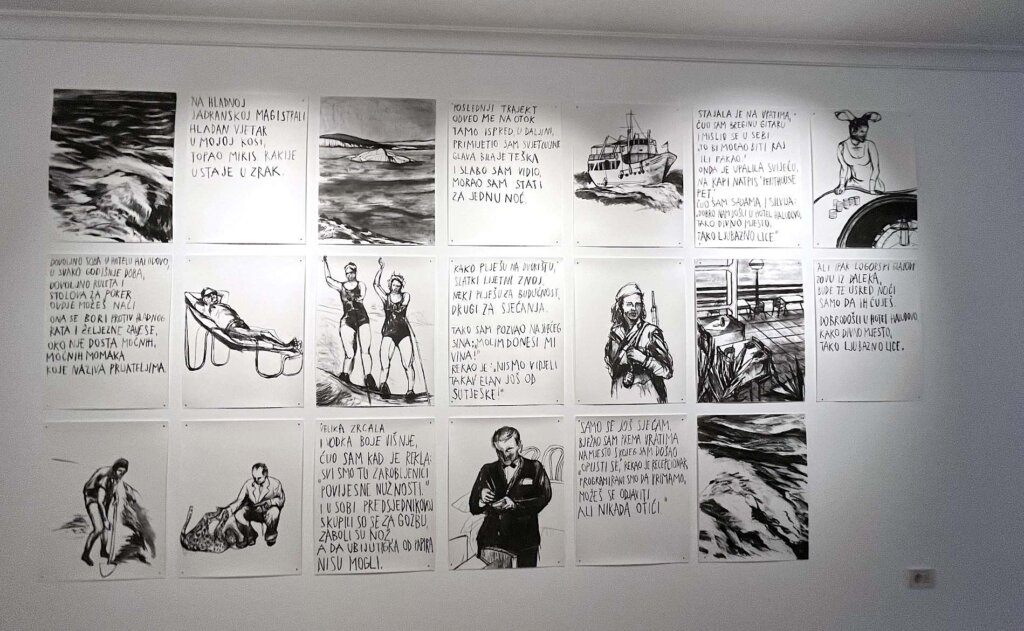 NA HLADNOJ
JADRANSKOJ MAGISTRALI
HLADAN VJETAR
U MOJOJ KOSI,
TOPAO MIRIS RAKIJE
USTAJE U ZRAK.
POSLEDNJI TRAJEKT
ODVEO ME NA OTOK
TAMO ISPRED, U DALJINI,
PRIMIJETIO SAM SVJETLO
GLAVA BILA JE TEŠKA
I SLABO SAM VIDIO,
MORAO SAM STATI
ZA JEDNU NOĆ.
STAJALA JE NA VRATIMA,
ČUO SAM BEEGINU GITARU
I MISLIO JE U SEBI
„TO BI MOGAO BITI RAJ
ILI PAKAO."
ONDA JE UPALILA SVIJEĆU,
NA KAPI NATPIS "PENTHOUSE
PET",
ČUO SAM SADAMA I SILVIJA:
„DOBRO NAM DOŠLI U HOTEL HALUDOVO,
TAKO DIVNO MJESTO,
TAKO LJUBAZNO LICE"
DOVOLJNO SOBA U HOTELU HALUDOVO,
U SVAKO GODIŠNJE DOBA,
DOVOLJNO RULETA I
STOLOVA ZA POKER
OVDJE MOŽEŠ NAĆI
ONA SE BORI PROTIV HLADNOG
RATA I ŽELJEZNE ZAVJESE,
OKO NJE DOSTA MOĆNIH,
MOĆNIH MOMAKA
KOJE NAZIVA PRIJATELJIMA.
KAKO PLEŠU NA DVORIŠTU,
SLATKI LJETNI ZNOJ,
NEKI PLEŠU ZA BUDUĆNOST,
DRUGI ZA SJEĆANJA.
TAKO SAM POZVAO NAJVEĆEG
SINA: „MOLIM DONESI MI
VINA!"
REKAO JE: „NISMO VIDJELI
TAKAV ELAN JOŠ OD
SUTJESKE!"
ALI IPAK LOGORSKI GLASOVI
ZOVU IZ DALEKA,
BUDE TE USRED NOĆI
SAMO DA IH ČUJEŠ
DOBRODOŠLI U HOTEL HALUDOVO,
KAKO DIVNO MJESTO,
TAKO LJUBAZNO LICE.
VELIKA ZRCALA
I VODKA BOJE VIŠNJE,
ČUO SAM KAD JE REKLA:
„SVI SMO TU ZAROBLJENICI
POVIJESNE NUŽNOSTI."
I U SOBI PREDSJEDNIKOVOJ
SKUPILI SU SE ZA GOZBU,
ZABOLI SU NOŽ,
A DA UBIJU TIGRA OD PAPIRA
NISU MOGLI.
SAMO SE JOŠ SJEĆAM,
BJEŽAO SAM PREMA VRATIMA
NA MJESTO S KOJEG SAM DOŠAO
„OPUSTI SE," REKAO JE RECEPCIONAR,
PROGRAMIRANI SMO DA PRIMAMO,
MOŽEŠ SE ODJAVITI
ALI NIKADA OTIĆI.